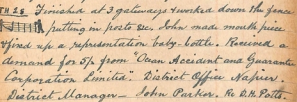 TH 28 Finished at 3 gateways & worked down the fence
putting in posts &c. John made mouth piece
& fixed up a representation baby bottle. Received a
demand for 5/- from "Ocean Accident and Guarantee
Corporation Limited" District Office Napier.
District Manager — John Parker. Re D. Potts.